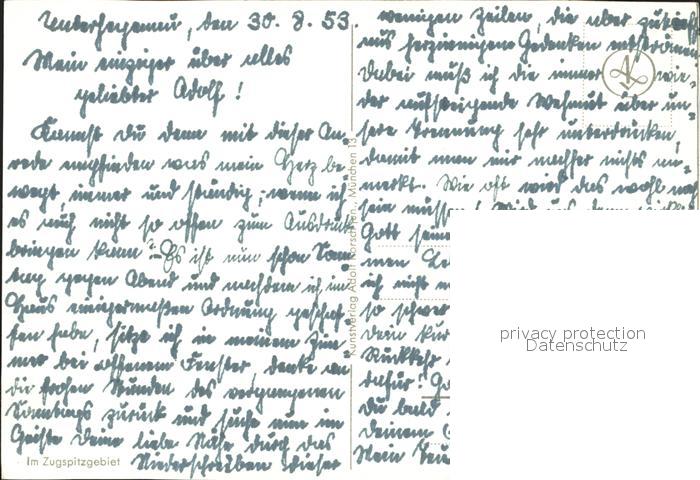 Unterhegenau, den 30. 8. 53.
Mein einziger über alles
geliebter Adolf!
Kannst Du denn mit dieser An-
rede empfinden was mein Herz be-
wegt, immer und ständig; wenn ich
es auch nicht so offen zum Ausdruck
bringen kann? – Es ist nun schon Sonn-
tag gegen Abend und nachdem ich im
Haus einigermaßen Ordnung geschaf-
fen habe, sitze ich in meinem Zim-
mer bei offenem Fenster, denke an
die frohen Stunden des vergangenen
Sonntags zurück und suche nun im
Geiste Deine liebe Nähe durch das
Niederschreiben dieser
Im Zugspitzgebiet
Kunstverlag Adolf Korsch München 13
wenigen Zeilen, die aber zutiefst
aus herzinnigen Gedanken entströmen
Dabei muß ich die immer wie-
der aufsteigende Wehmut über un-
sere Trennung sehr unterdrücken,
damit man mir nachher nichts an-
merkt. Wie oft wird das wohl noch
sein müssen?
Gott seine
men
ich nicht
so schwer
Dein kur
Rückkehr
dafür!
Du bald
Deinem
Mein
AK
privacy protection
Datenschutz